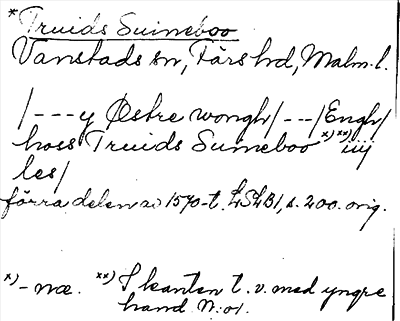 * Truids Suineboo
Vanstads sn, Färs hd, Malm. l.
/---y Østre wongh/---/Engh/
hoss Truids Suineboo x) xx) iiij
les/
förra delen av 1570-t. LSLB1, s. 200. orig.
x) - næ. xx) I kanten t. v. med yngre
hand N:o1.